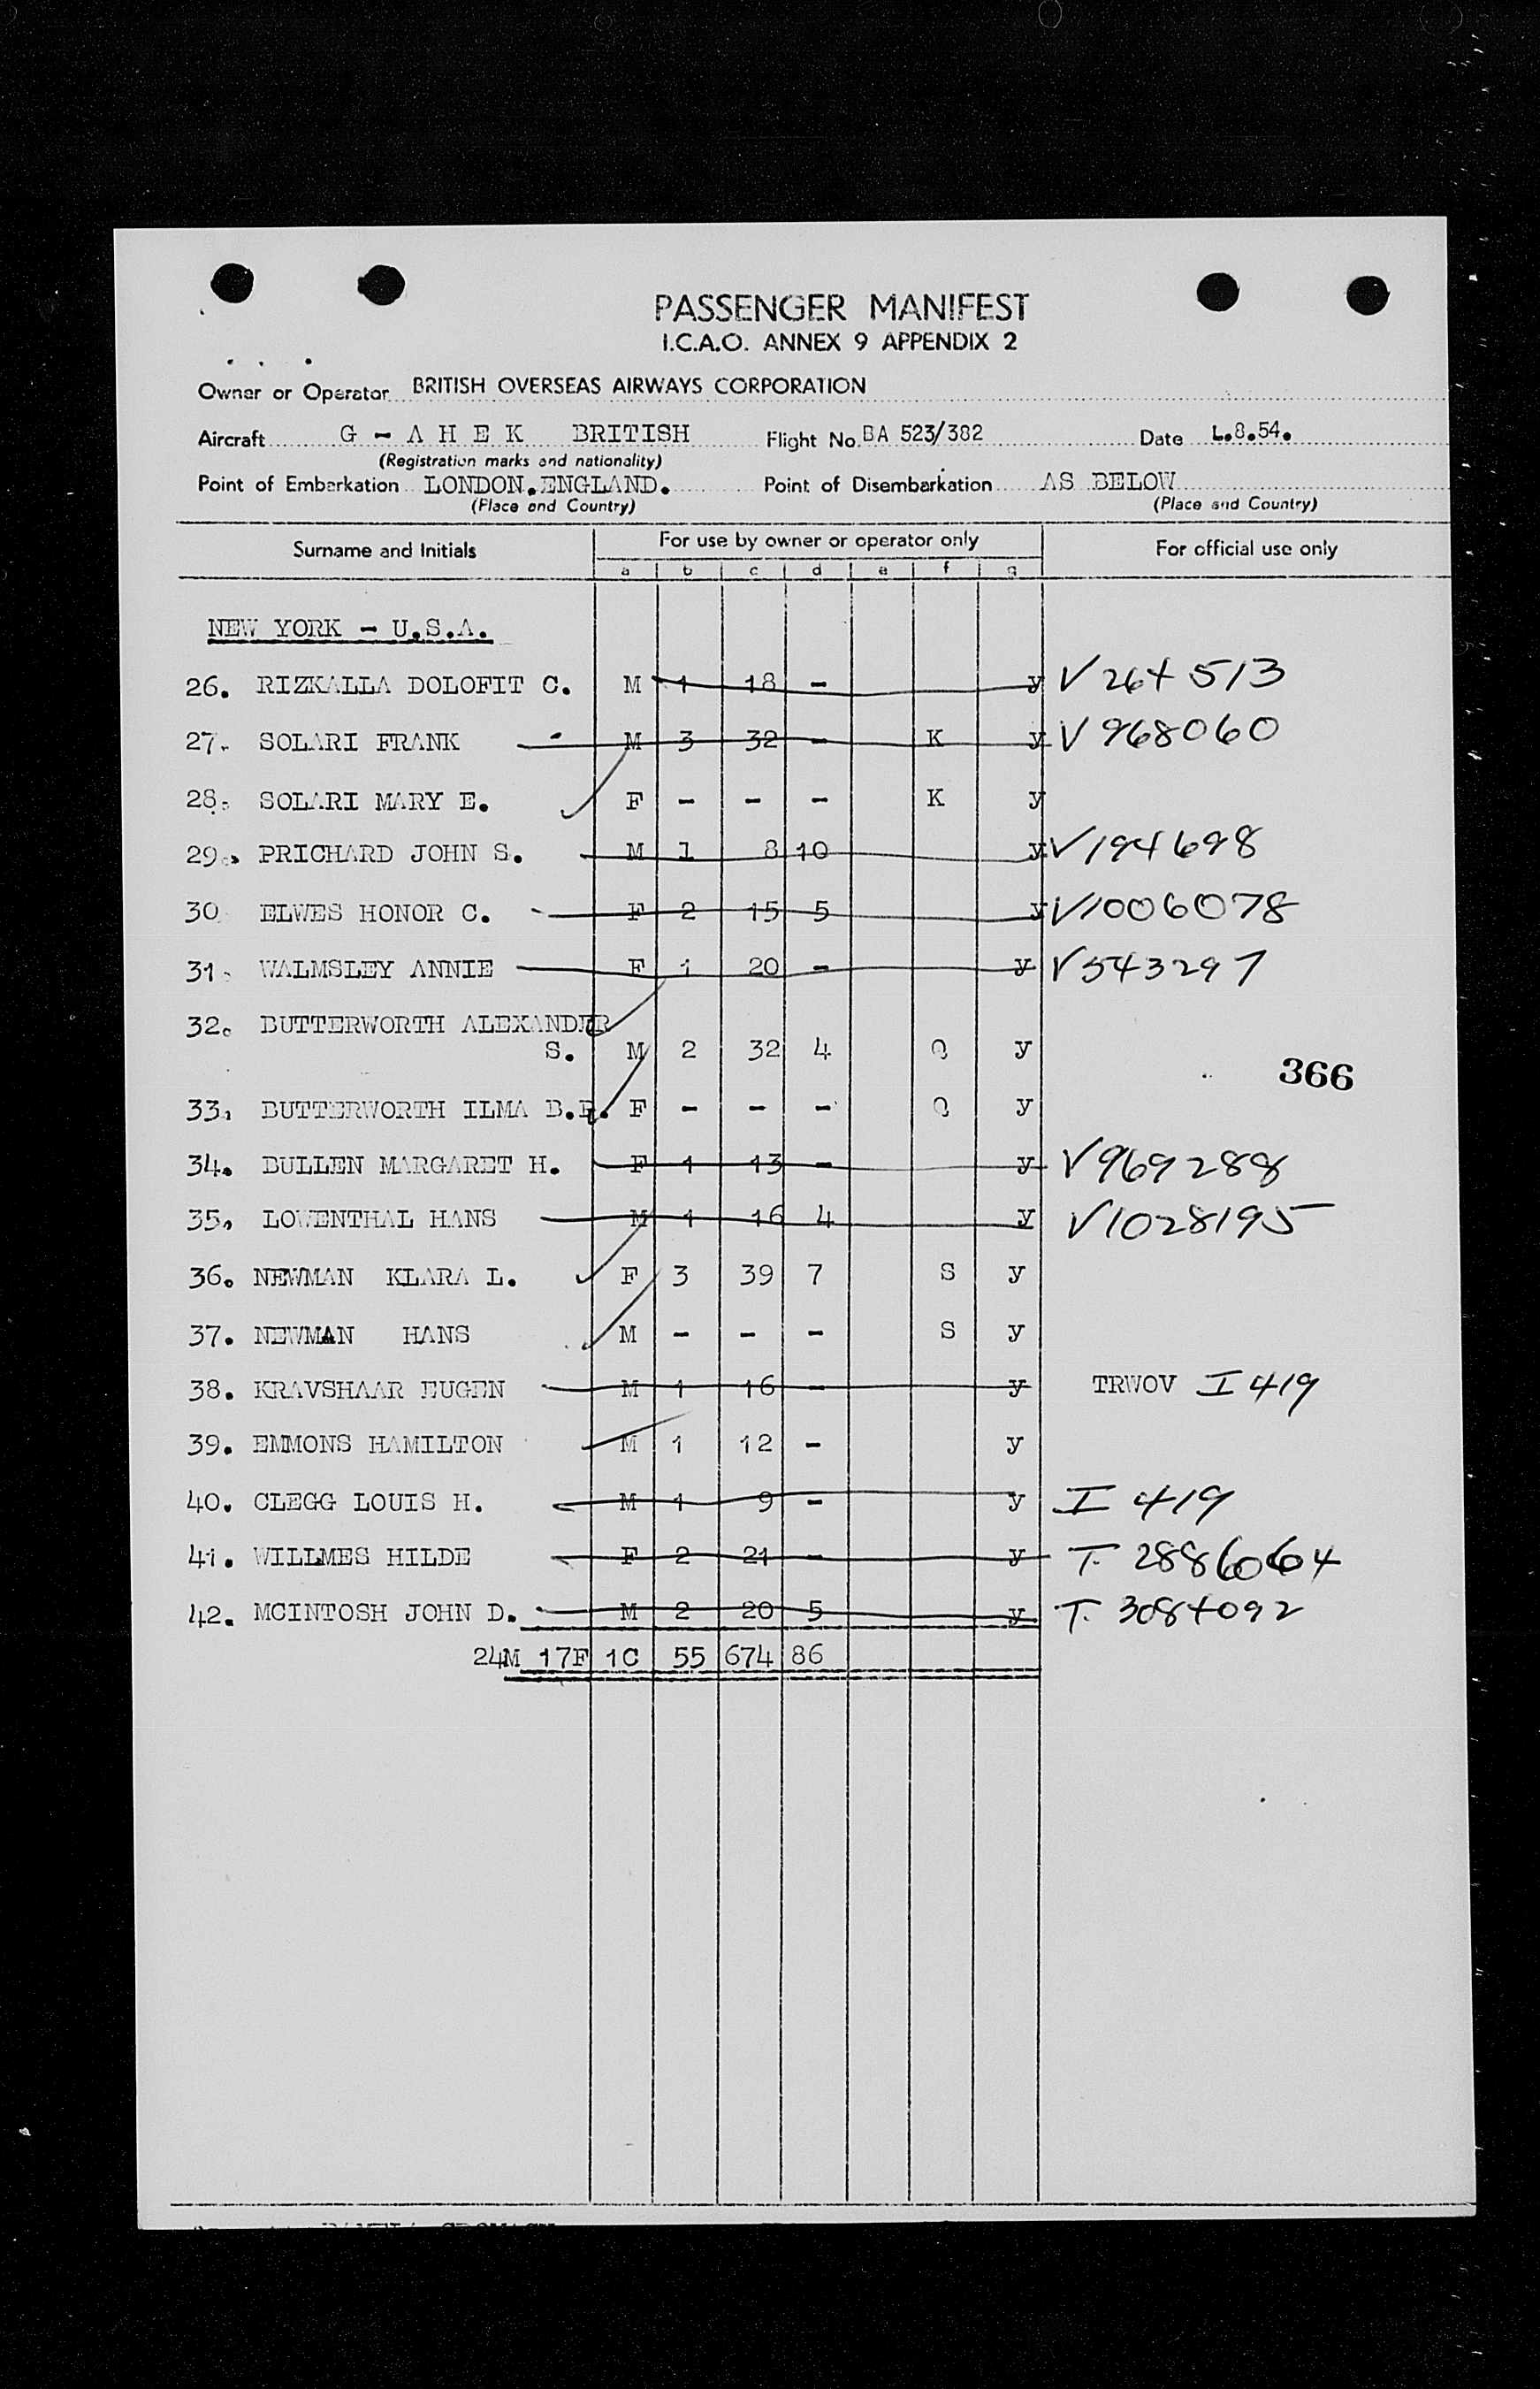 PASSENGER MANIFEST
I.C.A.O. ANNEX 9 APPENDIX 2
Owner or Operator BRITISH OVERSEAS AIRWAYS CORPORATION
Aircraft G - A H E K BRITISH Flight No. BA 523/382 Date 4.8.54.
(Registration marks and nationality)
Point of Embarkation LONDON.ENGLAND. Point of Disembarkation AS BELOW
(Place and Country) (Place and Country)
Surname and Initials For use by owner or operator only For official use only
a b c d e f g
NEW YORK - U.S.A.
26. RIZKALLA DOLOFIT C. M 1 18 - y V 264513
27. SOLARI FRANK M 3 32 - K y V 968060
28. SOLARI MARY E. F - - - K y
29. PRICHARD JOHN S. M 1 8 10 y V194698
30 ELWES HONOR C. F 2 15 5 y V1006078
31. WALMSLEY ANNIE F 1 20 - y V543297
32. BUTTERWORTH ALEXANDER
S. M 2 32 4 Q y
366
33. BUTTERWORTH ILMA B.R. F - - - Q y
34. BULLEN MARGARET H. F 1 13 - y V969288
35. LOWENTHAL HANS M 1 16 4 y V1028195
36. NEWMAN KLARA L. F 3 39 7 S y
37. NEWMAN HANS M - - - S y
38. KRAVSHAAR EUGEN M 1 16 - y TRWOV I 419
39. EMMONS HAMILTON M 1 12 - y
40. CLEGG LOUIS H. M 1 9 - y I 419
41. WILLMES HILDE F 2 21 - y T. 2886064
42. MCINTOSH JOHN D. M 2 20 5 y T. 3084092
24M 17F 1C 55 674 86